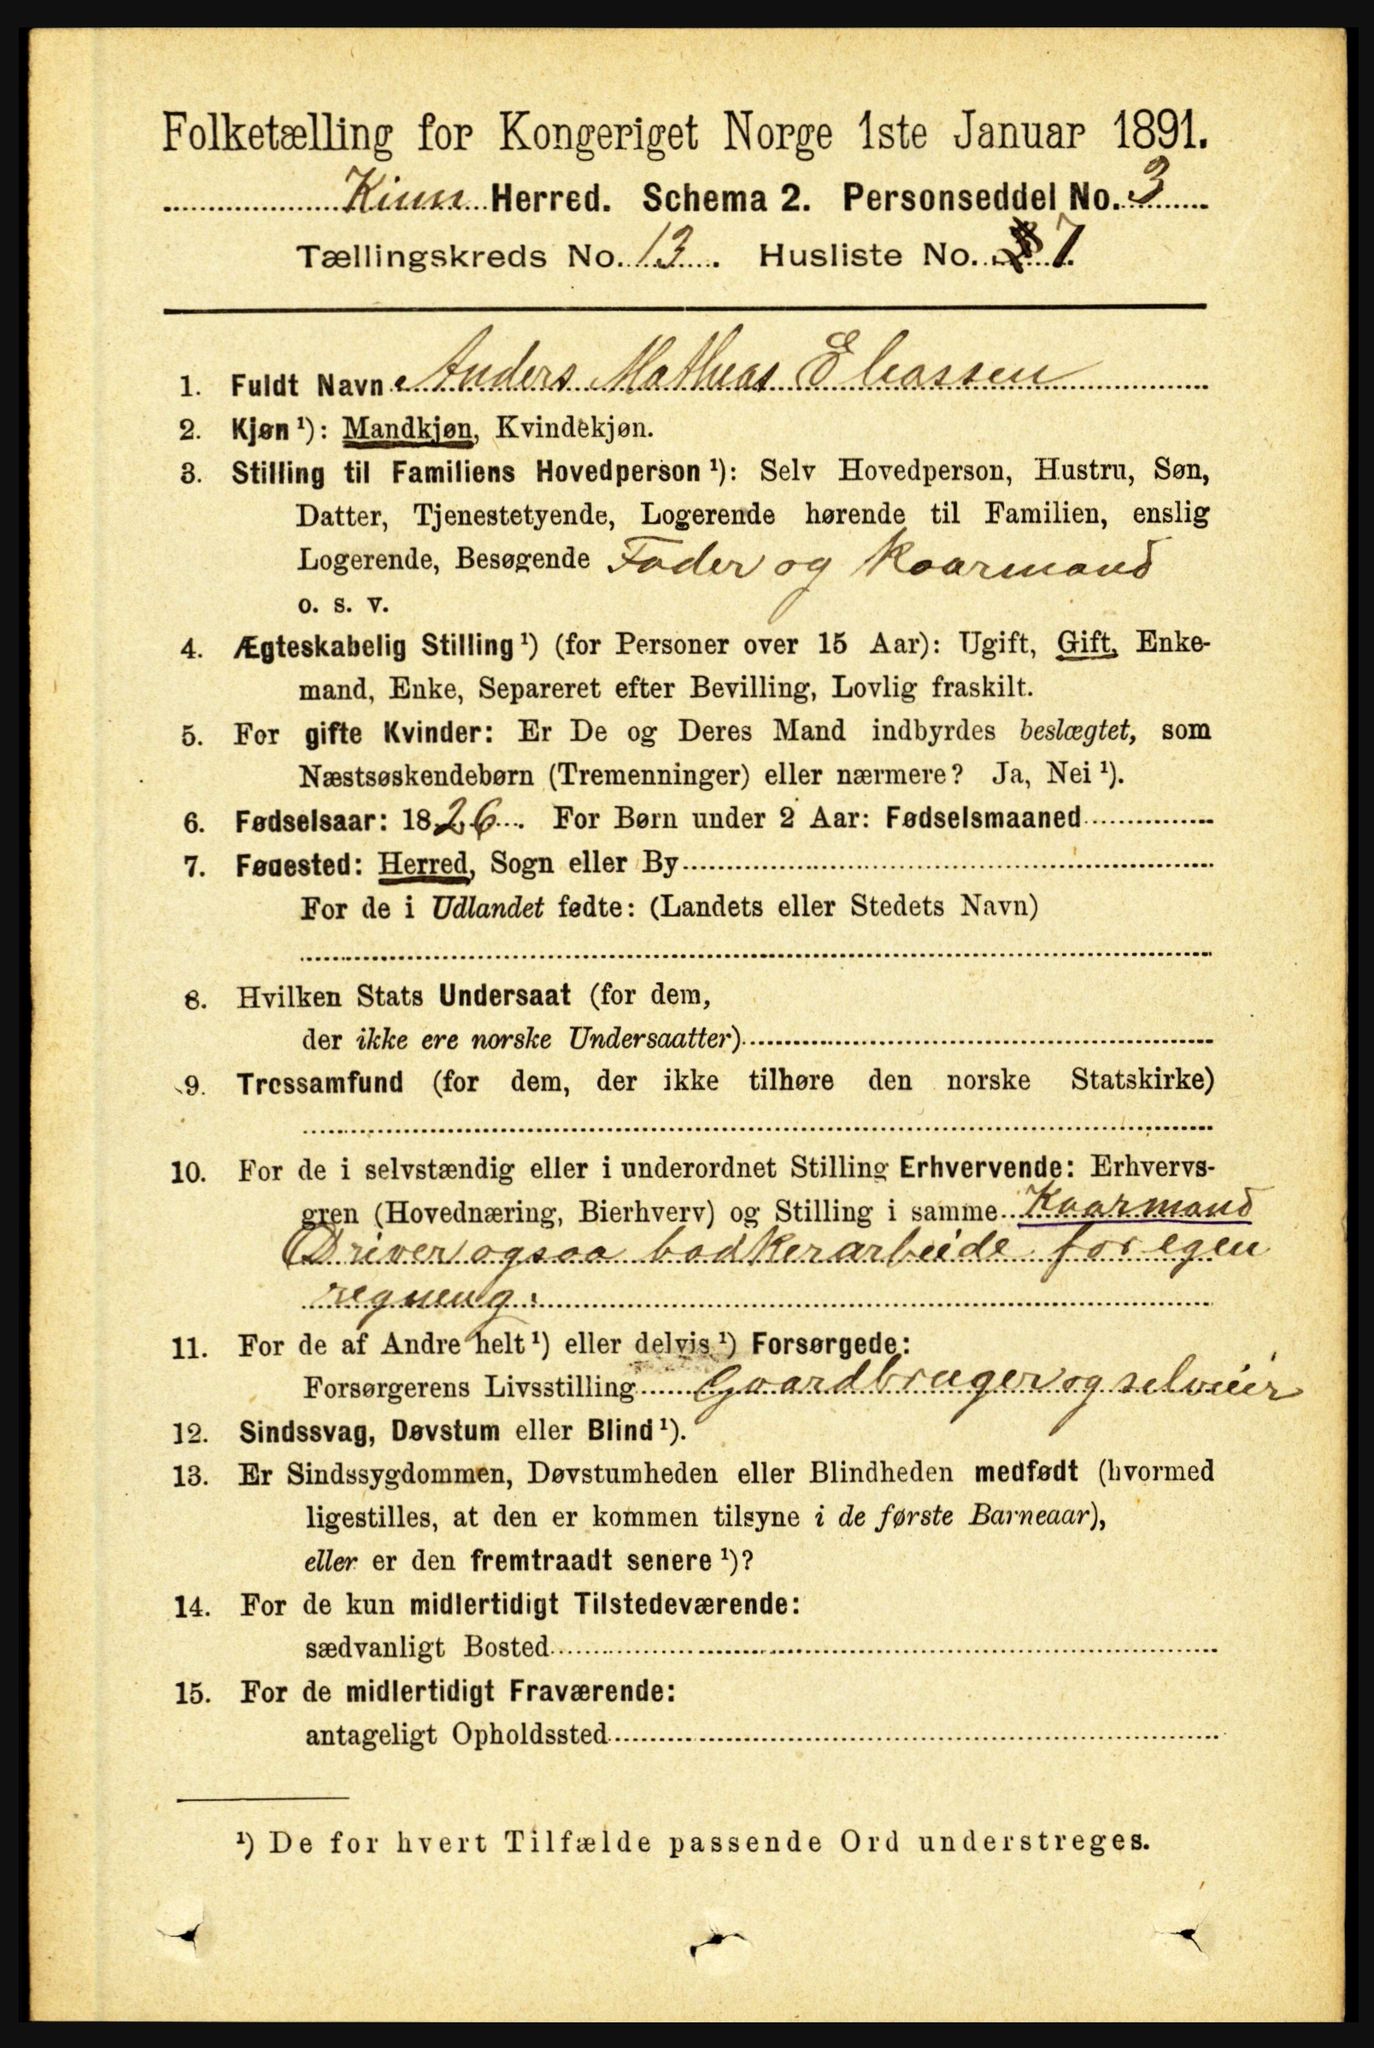 Folketælling for Kongeriget Norge 1ste Januar 1891.
Kinn Herred. Schema 2. Personseddel No. 3
Tællingskreds No. 13. Husliste No. 7
1. Fuldt Navn Anders Mathias Eliassen
2. Kjøn¹): Mandkjøn, Kvindekjøn.
3. Stilling til Familiens Hovedperson¹): Selv Hovedperson, Hustru, Søn,
Datter, Tjenestetyende, Logerende hørende til Familien, enslig
Logerende, Besøgende Fader og Kaarmand
o. s. v.
4. Ægteskabelig Stilling¹) (for Personer over 15 Aar): Ugift, Gift, Enke-
mand, Enke, Separeret efter Bevilling, Lovlig fraskilt.
5. For gifte Kvinder: Er De og Deres Mand indbyrdes beslægtet, som
Næstsøskendebørn (Tremenninger) eller nærmere? Ja, Nei¹).
6. Fødselsaar: 1826. For Børn under 2 Aar: Fødselsmaaned
7. Fødested: Herred, Sogn eller By
For de i Udlandet fødte: (Landets eller Stedets Navn)
8. Hvilken Stats Undersaat (for dem,
der ikke ere norske Undersaatter)
9. Trossamfund (for dem, der ikke tilhøre den norske Statskirke)
10. For de i selvstændig eller i underordnet Stilling Erhvervende: Erhvervs-
gren (Hovednæring, Bierhverv) og Stilling i samme Kaarmand
Driver ogsaa bødkerarbeide for egen
regning.
11. For de af Andre helt¹) eller delvis¹) Forsørgede:
Forsørgerens Livsstilling Gaardbruger og selveier
12. Sindssvag, Døvstum eller Blind¹).
13. Er Sindssygdommen, Døvstumheden eller Blindheden medfødt (hvormed
ligestilles, at den er kommen tilsyne i de første Barneaar),
eller er den fremtraadt senere¹)?
14. For de kun midlertidigt Tilstedeværende:
sædvanligt Bosted
15. For de midlertidigt Fraværende:
antageligt Opholdssted
¹) De for hvert Tilfælde passende Ord understreges.